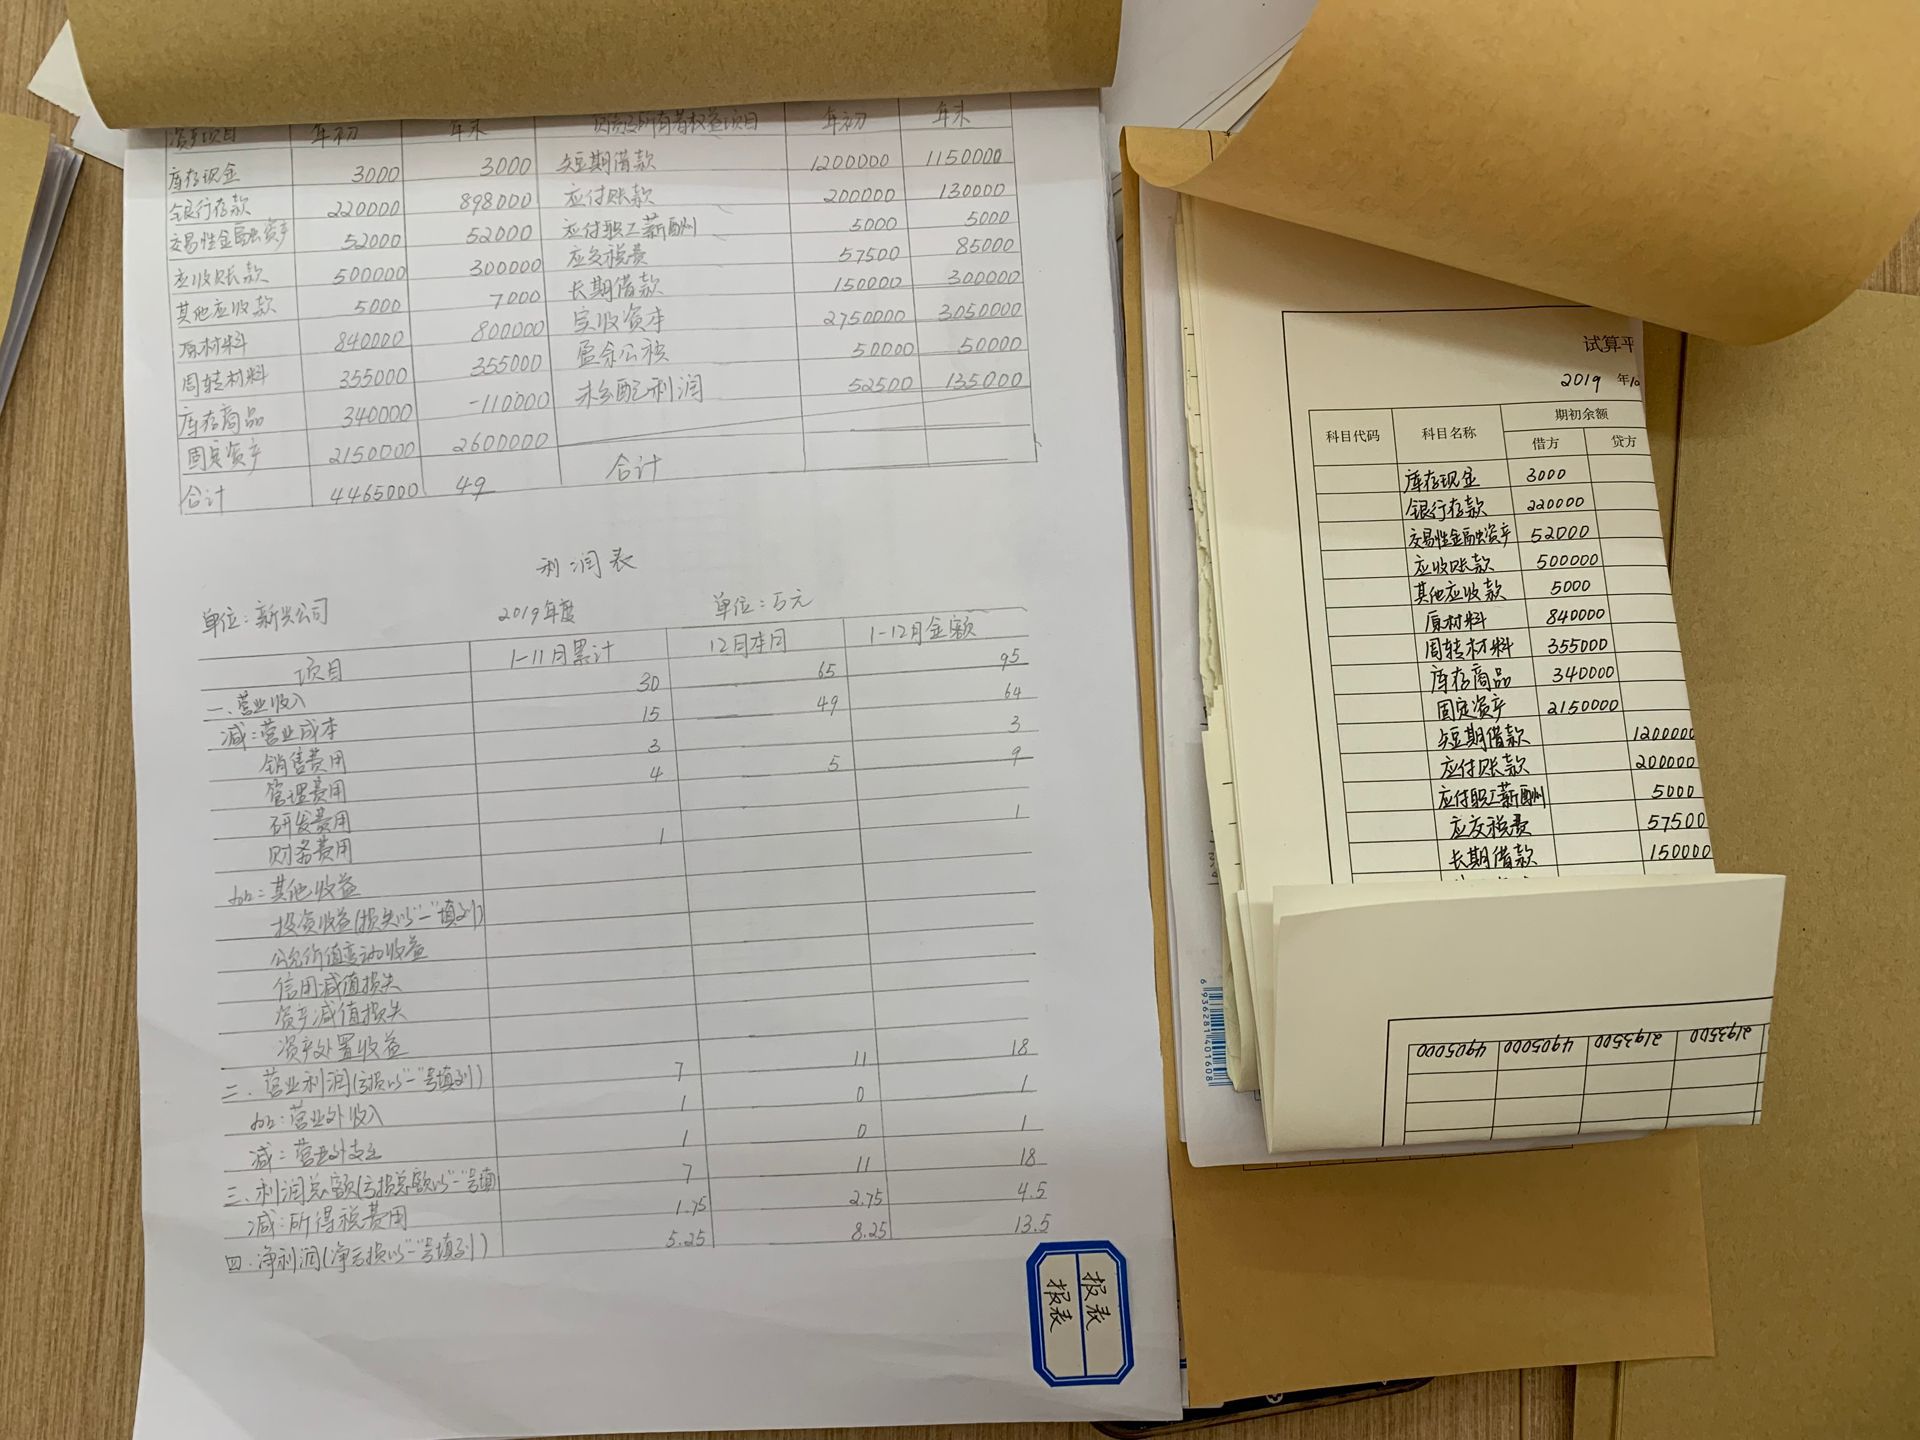 资产项目 年初 年末 负债及所有者权益项目 年初 年末
库存现金 3000 3000 短期借款 1200000 1150000
银行存款 220000 898000 应付账款 200000 130000
交易性金融资产 52000 52000 应付职工薪酬 5000 5000
应收账款 500000 300000 应交税费 57500 85000
其他应收款 5000 7000 长期借款 150000 300000
原材料 840000 800000 实收资本 2750000 3050000
周转材料 355000 355000 盈余公积 50000 50000
库存商品 340000 -110000 未分配利润 52500 135000
固定资产 2150000 2600000
合计 4465000 49 合计
利润表
单位：新光公司 2019年度 单位：万元
项目 1-11月累计 12月本月 1-12月金额
一.营业收入 30 65 95
减：营业成本 15 49 64
销售费用 3 3
管理费用 4 5 9
研发费用
财务费用 1 1
加：其他收益
投资收益(损失以"-"填列)
公允价值变动收益
信用减值损失
资产减值损失
资产处置收益
二.营业利润(亏损以"-"号填列) 7 11 18
加：营业外收入 1 0 1
减：营业外支出 1 0 1
三.利润总额(亏损总额以"-"号填 7 11 18
减：所得税费用 1.75 2.75 4.5
四.净利润(净亏损以"-"号填列) 5.25 8.25 13.5
报表
报表
试算平
2019 年10
科目代码 科目名称 期初余额
借方 贷方
库存现金 3000
银行存款 220000
交易性金融资产 52000
应收账款 500000
其他应收款 5000
原材料 840000
周转材料 355000
库存商品 340000
固定资产 2150000
短期借款 1200000
应付账款 200000
应付职工薪酬 5000
应交税费 57500
长期借款 150000
2193500 2193500 4905000 4905000
6 936281 401608